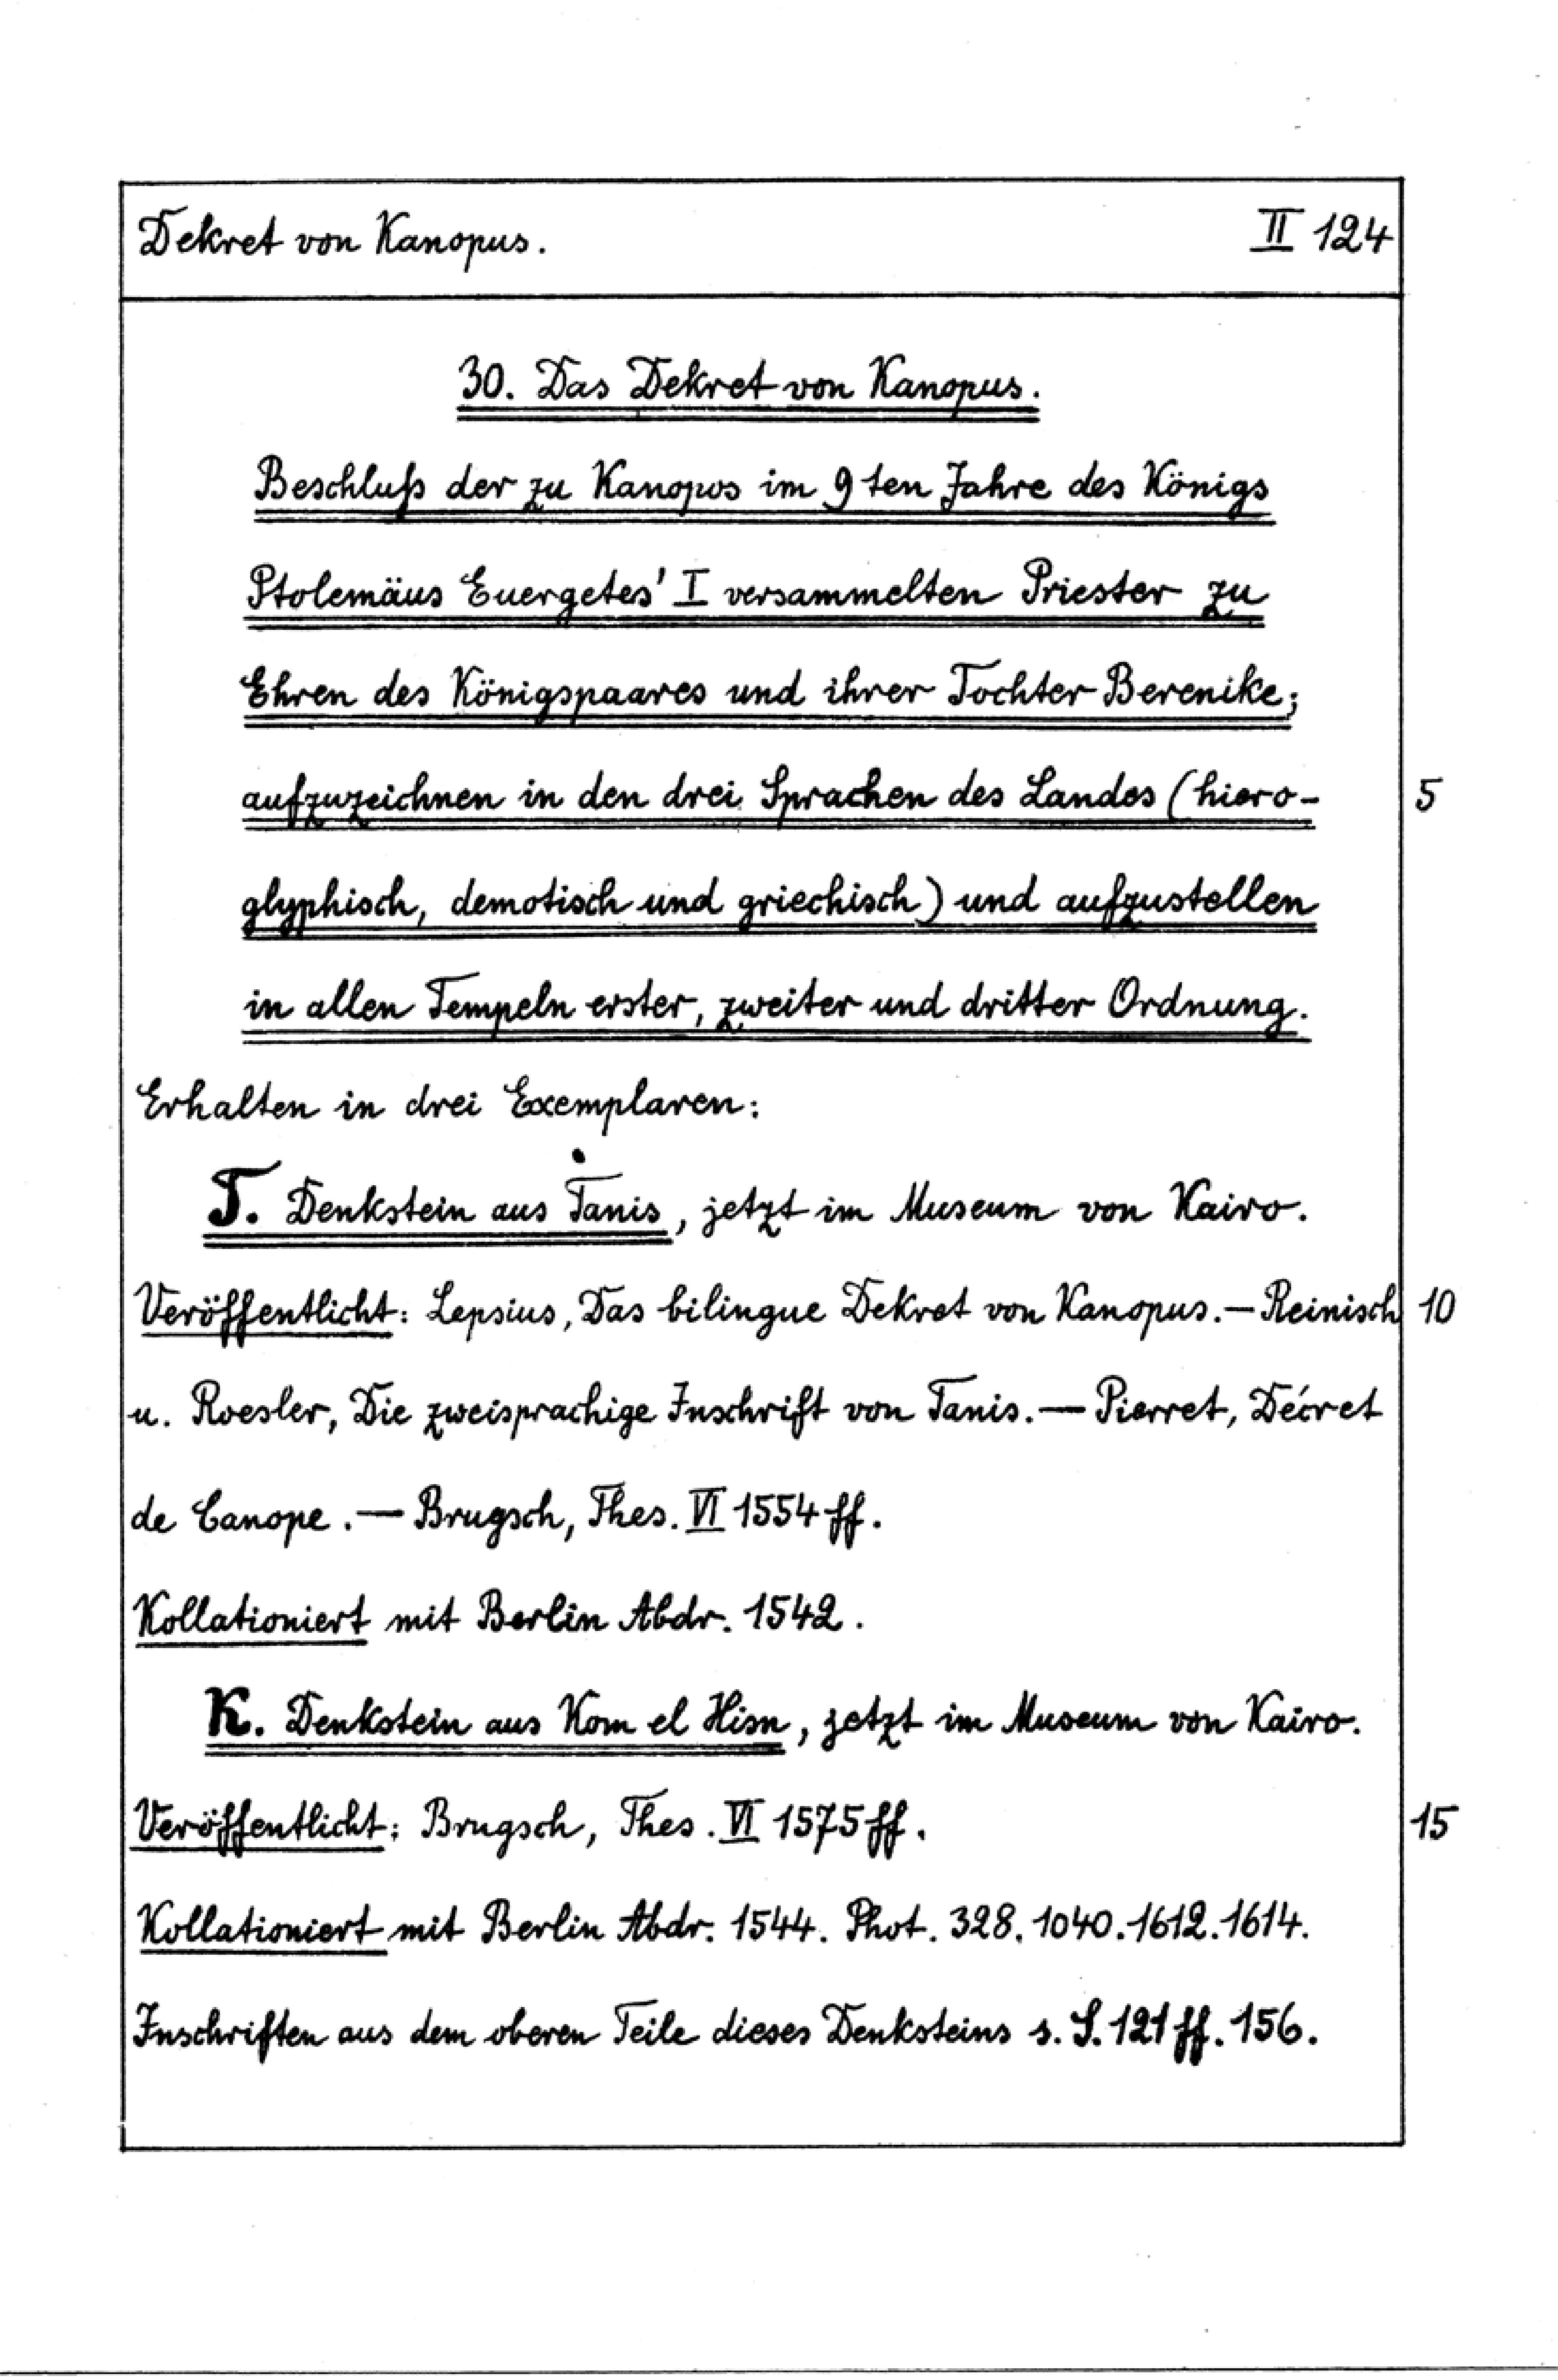 Dekret von Kanopus. II 124
30. Das Dekret von Kanopus.
Beschluß der zu Kanopos im 9ten Jahre des Königs
Ptolemäus Euergetes' I versammelten Priester zu
Ehren des Königspaares und ihrer Tochter Berenike;
aufzuzeichnen in den drei Sprachen des Landes (hiero- 5
glyphisch, demotisch und griechisch) und aufzustellen
in allen Tempeln erster, zweiter und dritter Ordnung.
Erhalten in drei Exemplaren:
T. Denkstein aus Tanis, jetzt im Museum von Kairo.
Veröffentlicht: Lepsius, Das bilingue Dekret von Kanopus. — Reinisch 10
u. Roesler, Die zweisprachige Inschrift von Tanis. — Pierret, Décret
de Canope. — Brugsch, Thes. VI 1554 ff.
Kollationiert mit Berlin Abdr. 1542.
K. Denkstein aus Kom el Hisn, jetzt im Museum von Kairo.
Veröffentlicht: Brugsch, Thes. VI 1575 ff. 15
Kollationiert mit Berlin Abdr. 1544. Phot. 328. 1040. 1612. 1614.
Inschriften aus dem oberen Teile dieses Denksteins s. S. 121 ff. 156.